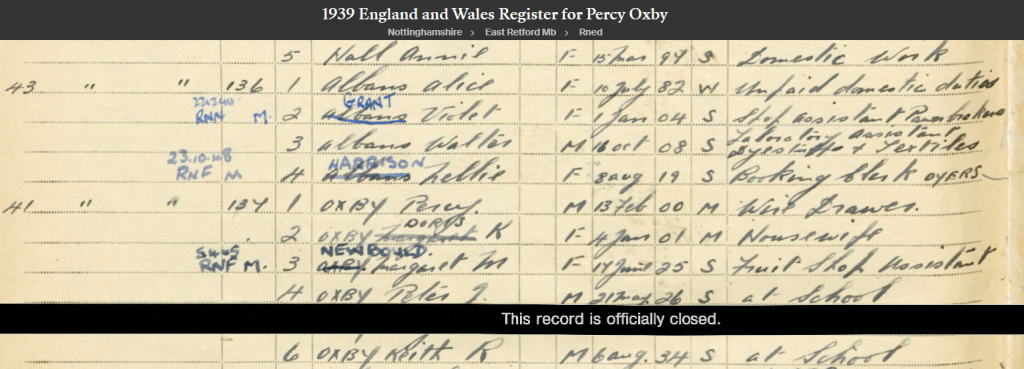 1939 England and Wales Register for Percy Oxby
Nottinghamshire > East Retford Mb > Rned
5 Hall Annie F 15 Mar 97 S Domestic Work
43 " " 136 1 Albans Alice F 10 July 82 W Unpaid domestic duties
RNN M. 2 Albans GRANT Violet F 1 Jan 04 S Shop assistant Pawnbrokers
3 Albans Walter M 16 Oct 08 S Laboratory assistant Dyestuffs & Textiles
23.10.48 RNF M 4 Albans HARRISON Nellie F 8 Aug 19 S Booking Clerk DYERS
41 " " 137 1 OXBY Percy. M 13 Feb 00 M Wire Drawer.
2 OXBY Margaret DORIS K F 4 Jan 01 M Housewife
RNF M. 3 OXBY NEWBOULD. Margaret M F 17 June 25 S Fruit Shop assistant
4 OXBY Peter J. M 21 May. 26 S at School
This record is officially closed.
6 OXBY Keith R M 6 aug. 34 S at School